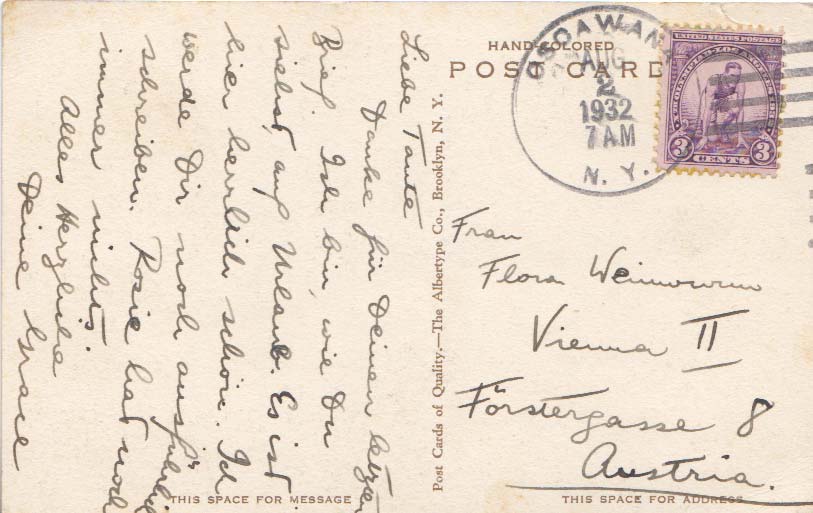 HAND-COLORED
POST CARD
AUG
2
1932
7 AM
N. Y.
UNITED STATES POSTAGE
3 CENTS 3
Liebe Tante
Danke für Deinen letzten
Brief. Ich bin, wie Du
siehst, auf Urlaub. Es ist
hier herrlich schön. Ich
werde Dir noch ausführlich
schreiben. Rosie hat noch
immer nichts.
Alles Herzliche
Deine Grace
Post Cards of Quality.—The Albertype Co., Brooklyn, N. Y.
Frau
Flora Weinwurm
Vienna II
Förstergasse 8
Austria.
THIS SPACE FOR MESSAGE
THIS SPACE FOR ADDRESS